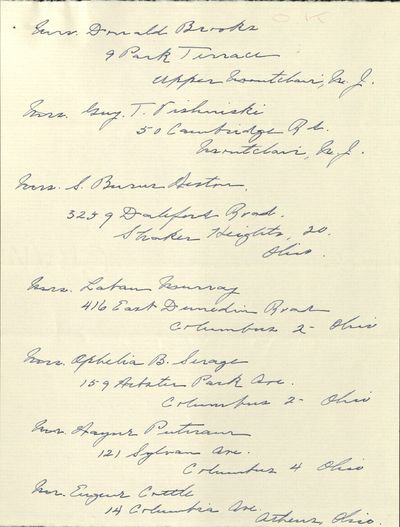 OK
Mrs. Donald Brooks
9 Park Terrace
Upper Montclair, N. J.
Mrs. Guy. T. Vishniski
50 Cambridge Rd.
Montclair, N. J.
Mrs. S. Burns Weston,
3259 Daleford Road.
Shaker Heights, 20.
Ohio.
Mrs. Laban Murray
416 East Dunedin Road
Columbus 2 - Ohio
Mrs. Ophelia B.
159 Park Ave.
Columbus 2 - Ohio
Mr. Wayne Putnam
121 Sylvan Ave.
Columbus 4 Ohio
Mr. Eugene Cottle
14 Columbia Ave.
Athens, Ohio.